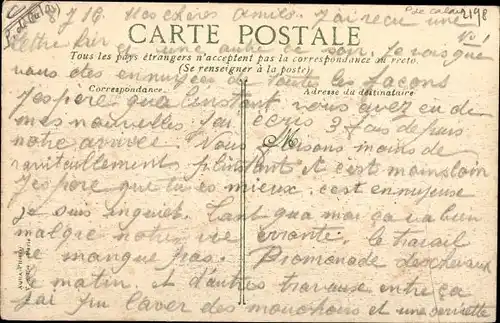 8 7 16 Mes chères Amies. J'ai reçu une
lettre hier et une autre ce soir. Je vois que
CARTE POSTALE
Tous les pays étrangers n'acceptent pas la correspondance au recto.
(Se renseigner à la poste).
vous avez des ennuyes de toutes les façons
Correspondance
Adresse du destinataire
J'espère qu'a l'instant vous avez eu de
mes nouvelles J'ai écris 3 fois depuis
notre arrivée. Nous faisons moins de
M
ravitaillement pl instant et c'est moins loin
J'espère que tu es mieux. c'est ennuyeuse
je suis inquiet. Tant qua moi ça va bien
malgré notre vie errante. le travail
ne manque pas. Promenade des chevaux
le matin. et d'autres travause entre ça
j'ai pu laver des mouchoirs et une serviette
2198